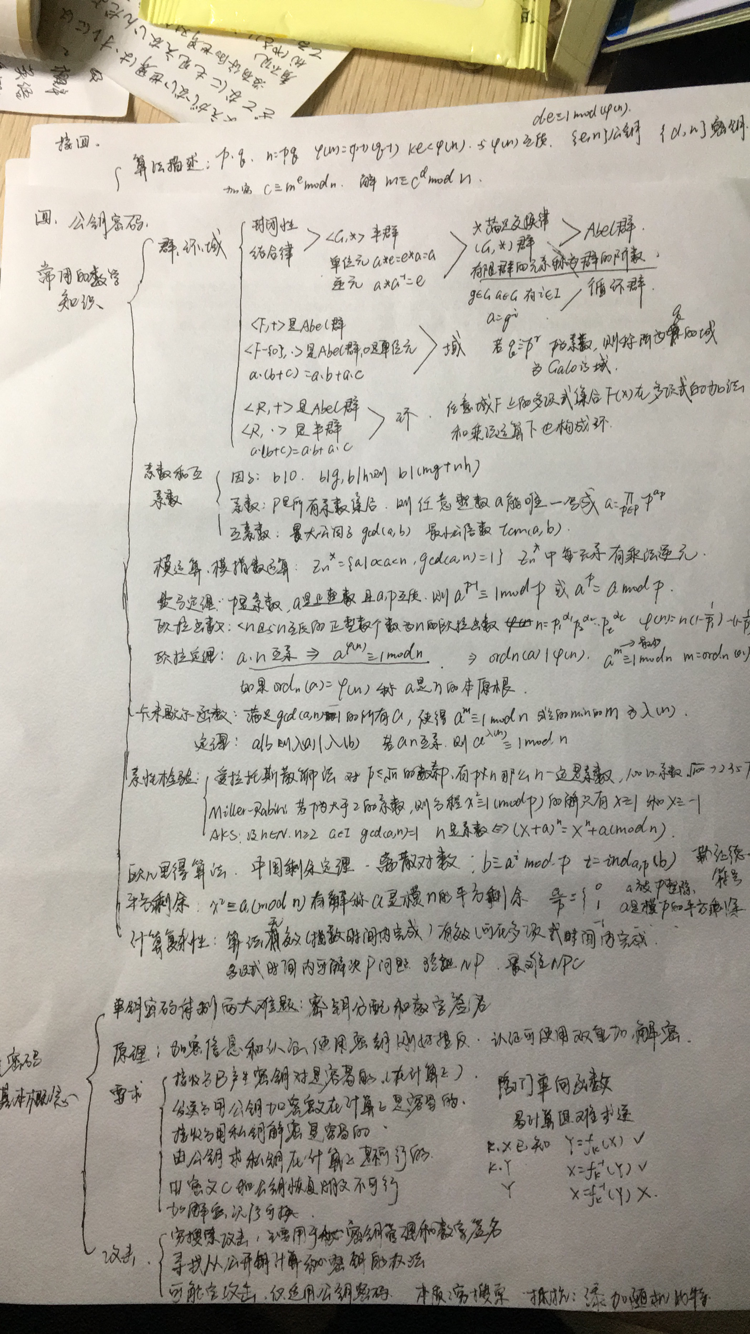 接四.
de≡1 mod φ(n).
算法描述: p.q. n=pq φ(n)=(p-1)(q-1) 1<e<φ(n). 与φ(n)互质. {e,n}公钥 {d,n}密钥.
加密 C≡m^e mod n. 解 m≡C^d mod n.
四. 公钥密码.
常用的数学知识
群.环.域
封闭性
结合律
<G,*>半群
单位元 a*e=e*a=a
逆元 a*a⁻¹=e
*满足交换律
(G,*)群
Abel群.
有限群的元素称为群的阶数,
g∈G a∈G 有i∈I
a=gⁱ
循环群.
<F,+>是Abel群
<F-{0},·>是Abel群,0是单位元
a·(b+c)=a·b+a·c
域
若q=pʳ p是素数,则称阶为q的域
为Galois域.
<R,+>是Abel群
<R,·>是半群
a·(b+c)=a·b+a·c
环.
任意域F上的多项式集合F(x)在多项式的加法
和乘法运算下也构成环.
素数和互素数
因子: b|0. b|g,b|h则 b|(mg+nh)
素数: P是所有素数集合. 则任意整数a能唯一写成 a=∏_{p∈P} p^{ap}
互素数: 最大公因子gcd(a,b) 最小公倍数lcm(a,b).
模运算,模指数运算: Zn*={a|0<a<n,gcd(a,n)=1} Zn*中每元素有乘法逆元.
费马定理: p是素数,a是正整数且a,p互质.则a^{p-1}≡1 mod p 或 a^p≡a mod p.
欧拉函数: <n且与n互质的正整数个数为n的欧拉函数 n=p₁^{α1}p₂^{α2}…p_t^{αt} φ(n)=n(1-1/p₁)
欧拉定理: a.n互素 ⇒ a^{φ(n)}≡1 mod n ⇒ ordn(a)|φ(n). a^m≡1 mod n m=ordn(a)
如果ordn(a)=φ(n) 称a是n的本原根.
卡米歇尔函数: 满足gcd(a,n)=1的所有a,使得a^m≡1 mod n 成立的min的m为λ(n).
定理: a|b则λ(a)|λ(b) 若a n互素.则a^{λ(n)}≡1 mod n
素性检验: 爱拉托斯散筛法 对p≤√n的素数p,有p∤n那么n一定是素数,
Miller-Rabin: 若p为大于2的素数,则方程x²≡1(mod p)的解只有x≡1和x≡-1
AKS: 设n∈N.n≥2 a∈I gcd(a,n)=1 n是素数⇔(x+a)ⁿ=xⁿ+a(mod n).
欧几里得算法. 中国剩余定理. 离散对数: b≡aⁱ mod p i=ind_{a,p}(b) 勒让德
符号
平方剩余: x²≡a(mod n)有解称a是模n的平方剩余 a/p={0 a被p整除.
1 a是模p的平方剩余
计算复杂性: 算法有效(指数时间内完成)有效(可在多项式时间内完成.
多项式时间内可解决P问题 验证NP. 最难NPC
基本概念
单钥密码体制两大难题: 密钥分配和数字签名
原理: 加密信息和认证使用密钥刚好相反. 认证可使用双重加,解密.
要求
接收方B产生密钥对是容易的.(在计算上)
发送方用公钥加密文在计算上是容易的.
接收方用私钥解密是容易的.
由公钥求私钥在计算上是不可行的.
由密文C和公钥恢复明文不可行
加解密次序可换.
陷门单向函数
易计算且难求逆
k.X已知 Y=f_k(X) ✓
k.Y X=f_k⁻¹(Y) ✓
Y X=f_k⁻¹(Y) ✗.
攻击.
穷搜索攻击,主要用于密钥管理和数字签名
寻找从公开钥计算秘密钥的方法
可能字攻击,仅适用公钥密码. 本质:穷搜索 抵抗:添加随机比特